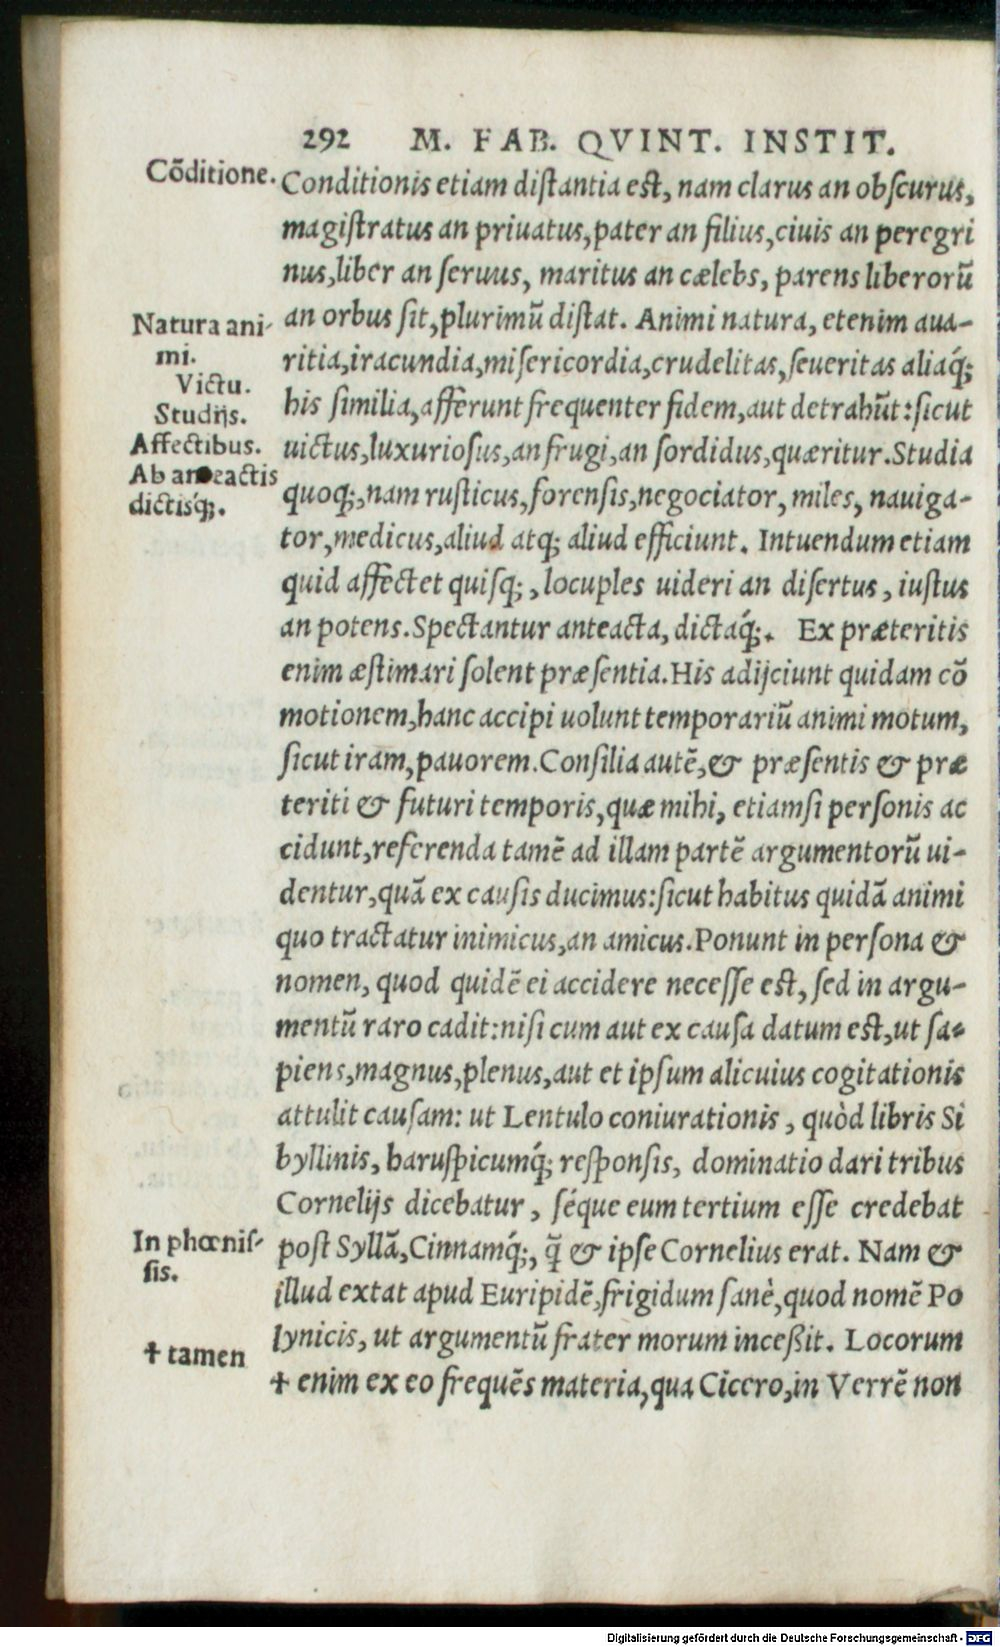 292 M. FAB. QVINT. INSTIT.
Cōditione.
Conditionis etiam distantia est, nam clarus an obscurus,
magistratus an priuatus, pater an filius, ciuis an peregri
nus, liber an seruus, maritus an cælebs, parens liberorũ
Natura ani-
mi.
an orbus sit, plurimũ distat. Animi natura, etenim aua-
ritia, iracundia, misericordia, crudelitas, seueritas aliaq́;
Victu.
Studijs.
his similia, afferunt frequenter fidem, aut detrahũt: sicut
Affectibus.
uictus, luxuriosus, an frugi, an sordidus, quæritur. Studia
Ab anteactis
dictisq́;.
quoq;, nam rusticus, forensis, negociator, miles, nauiga-
tor, medicus, aliud atq; aliud efficiunt. Intuendum etiam
quid affectet quisq;, locuples uideri an disertus, iustus
an potens. Spectantur anteacta, dictaq́;. Ex præteritis
enim æstimari solent præsentia. His adijciunt quidam cō
motionem, hanc accipi uolunt temporariũ animi motum,
sicut iram, pauorem. Consilia autẽ, & præsentis & præ
teriti & futuri temporis, quæ mihi, etiamsi personis ac
cidunt, referenda tamẽ ad illam partẽ argumentorũ ui-
dentur, quã ex causis ducimus: sicut habitus quidã animi
quo tractatur inimicus, an amicus. Ponunt in persona &
nomen, quod quidẽ ei accidere necesse est, sed in argu-
mentũ raro cadit: nisi cum aut ex causa datum est, ut sa-
piens, magnus, plenus, aut et ipsum alicuius cogitationis
attulit causam: ut Lentulo coniurationis, quòd libris Si
byllinis, haruspicumq́; responsis, dominatio dari tribus
Cornelijs dicebatur, séque eum tertium esse credebat
In phœnis-
sis.
post Syllã, Cinnamq́;, q̃ & ipse Cornelius erat. Nam &
illud extat apud Euripidẽ, frigidum sanè, quod nomẽ Po
lynicis, ut argumentũ frater morum inceßit. Locorum
✝ tamen
✝ enim ex eo frequẽs materia, qua Cicero, in Verrẽ non
Digitalisierung gefördert durch die Deutsche Forschungsgemeinschaft - DFG